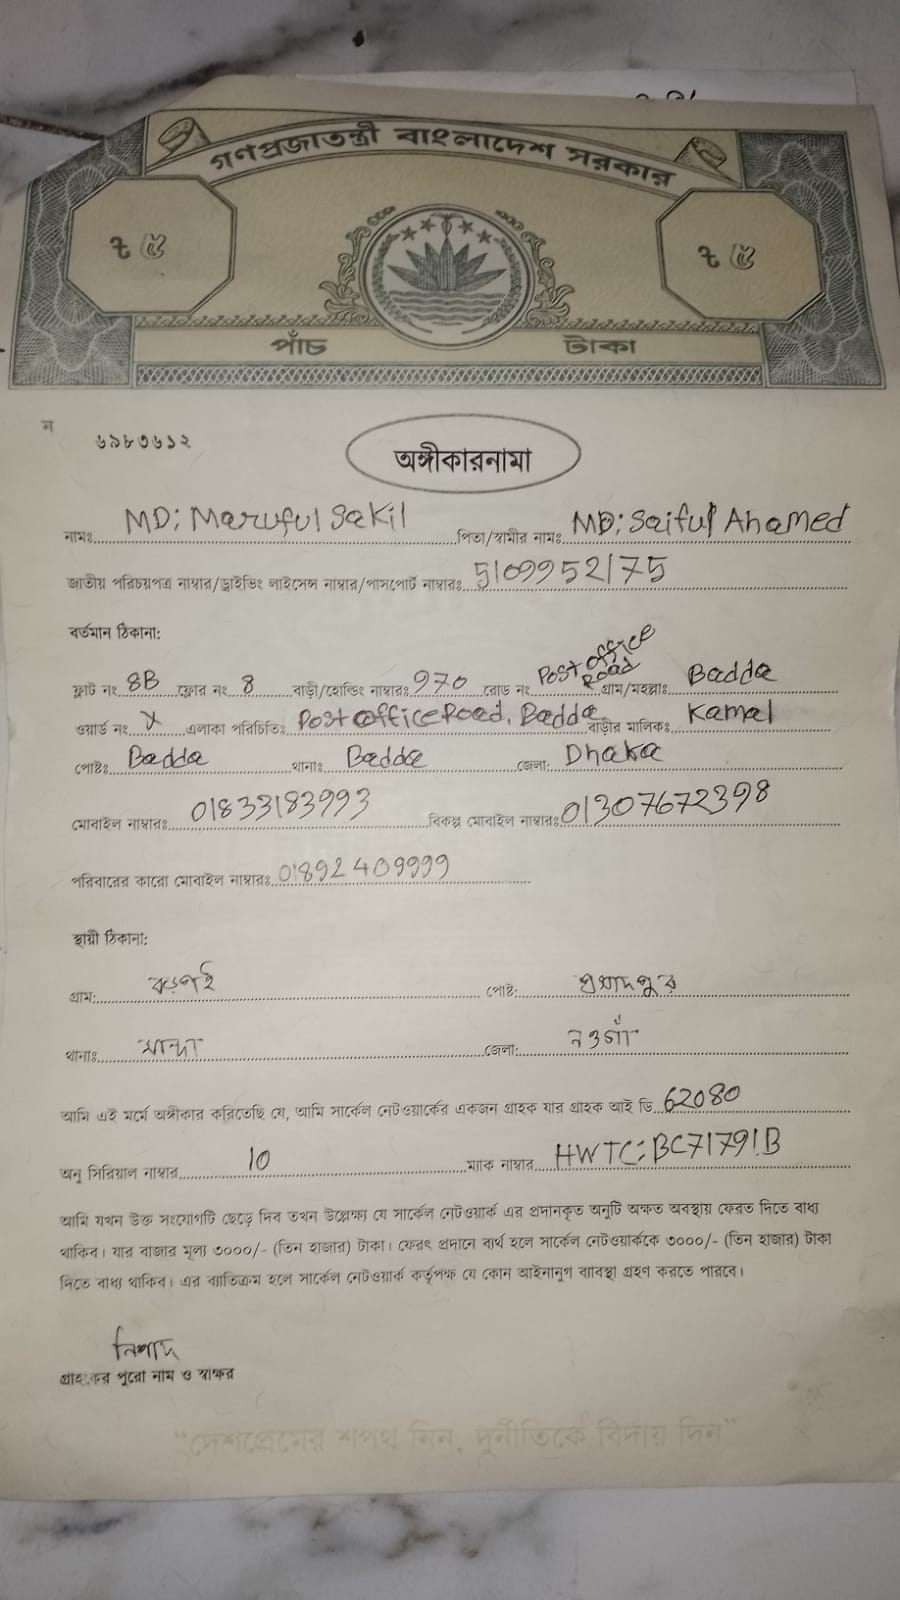 গণপ্রজাতন্ত্রী বাংলাদেশ সরকার
৳ ৫ ৳ ৫
পাঁচ টাকা
ন
৬৯৮৩৬১২
অঙ্গীকারনামা
নামঃ MD: Maruful Sakil পিতা/স্বামীর নামঃ MD: Saiful Ahamed
জাতীয় পরিচয়পত্র নাম্বার/ড্রাইভিং লাইসেন্স নাম্বার/পাসপোর্ট নাম্বারঃ 5109952175
বর্তমান ঠিকানা:
ফ্লাট নং 8B ফ্লোর নং 8 বাড়ী/হোল্ডিং নাম্বারঃ 970 রোড নং Post office Road গ্রাম/মহল্লাঃ Badda
ওয়ার্ড নং X এলাকা পরিচিতিঃ Post office Road, Badda বাড়ীর মালিকঃ Kamal
পোষ্টঃ Badda থানাঃ Badda জেলা: Dhaka
মোবাইল নাম্বারঃ 01833183993 বিকল্প মোবাইল নাম্বারঃ 01307672398
পরিবারের কারো মোবাইল নাম্বারঃ 01892409999
স্থায়ী ঠিকানা:
গ্রাম: বড়পই পোষ্ট: প্রসাদপুর
থানাঃ মান্দা জেলা: নওগাঁ
আমি এই মর্মে অঙ্গীকার করিতেছি যে, আমি সার্কেল নেটওয়ার্কের একজন গ্রাহক যার গ্রাহক আই ডি 62080
অনু সিরিয়াল নাম্বার 10 ম্যাক নাম্বার HWTC:BC71791B
আমি যখন উক্ত সংযোগটি ছেড়ে দিব তখন উল্লেক্ষ্য যে সার্কেল নেটওয়ার্ক এর প্রদানকৃত অনুটি অক্ষত অবস্থায় ফেরত দিতে বাধ্য
থাকিব। যার বাজার মূল্য ৩০০০/- (তিন হাজার) টাকা। ফেরৎ প্রদানে ব্যর্থ হলে সার্কেল নেটওয়ার্ককে ৩০০০/- (তিন হাজার) টাকা
দিতে বাধ্য থাকিব। এর ব্যতিক্রম হলে সার্কেল নেটওয়ার্ক কর্তৃপক্ষ যে কোন আইনানুগ ব্যাবস্থা গ্রহণ করতে পারবে।
গ্রাহকের পুরো নাম ও স্বাক্ষর
"দেশপ্রেমের শপথ নিন, দুর্নীতিকে বিদায় দিন"